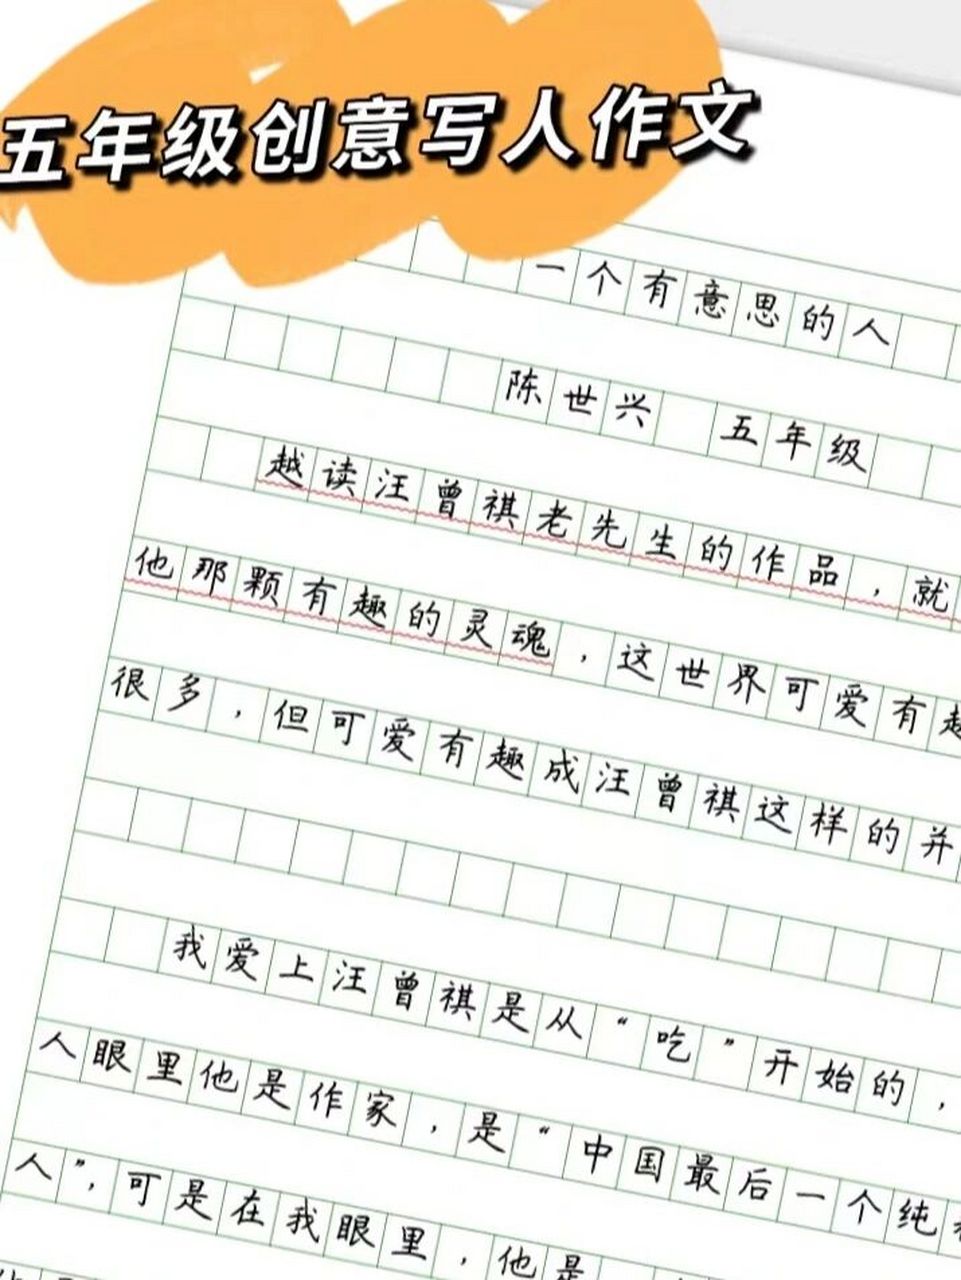 五年级创意写人作文
一个有意思的人
陈世兴 五年级
越读汪曾祺老先生的作品，就
他那颗有趣的灵魂，这世界可爱有
很多，但可爱有趣成汪曾祺这样的并
我爱上汪曾祺是从“吃”开始的，
人眼里他是作家，是“中国最后一个纯
人”，可是在我眼里，他是